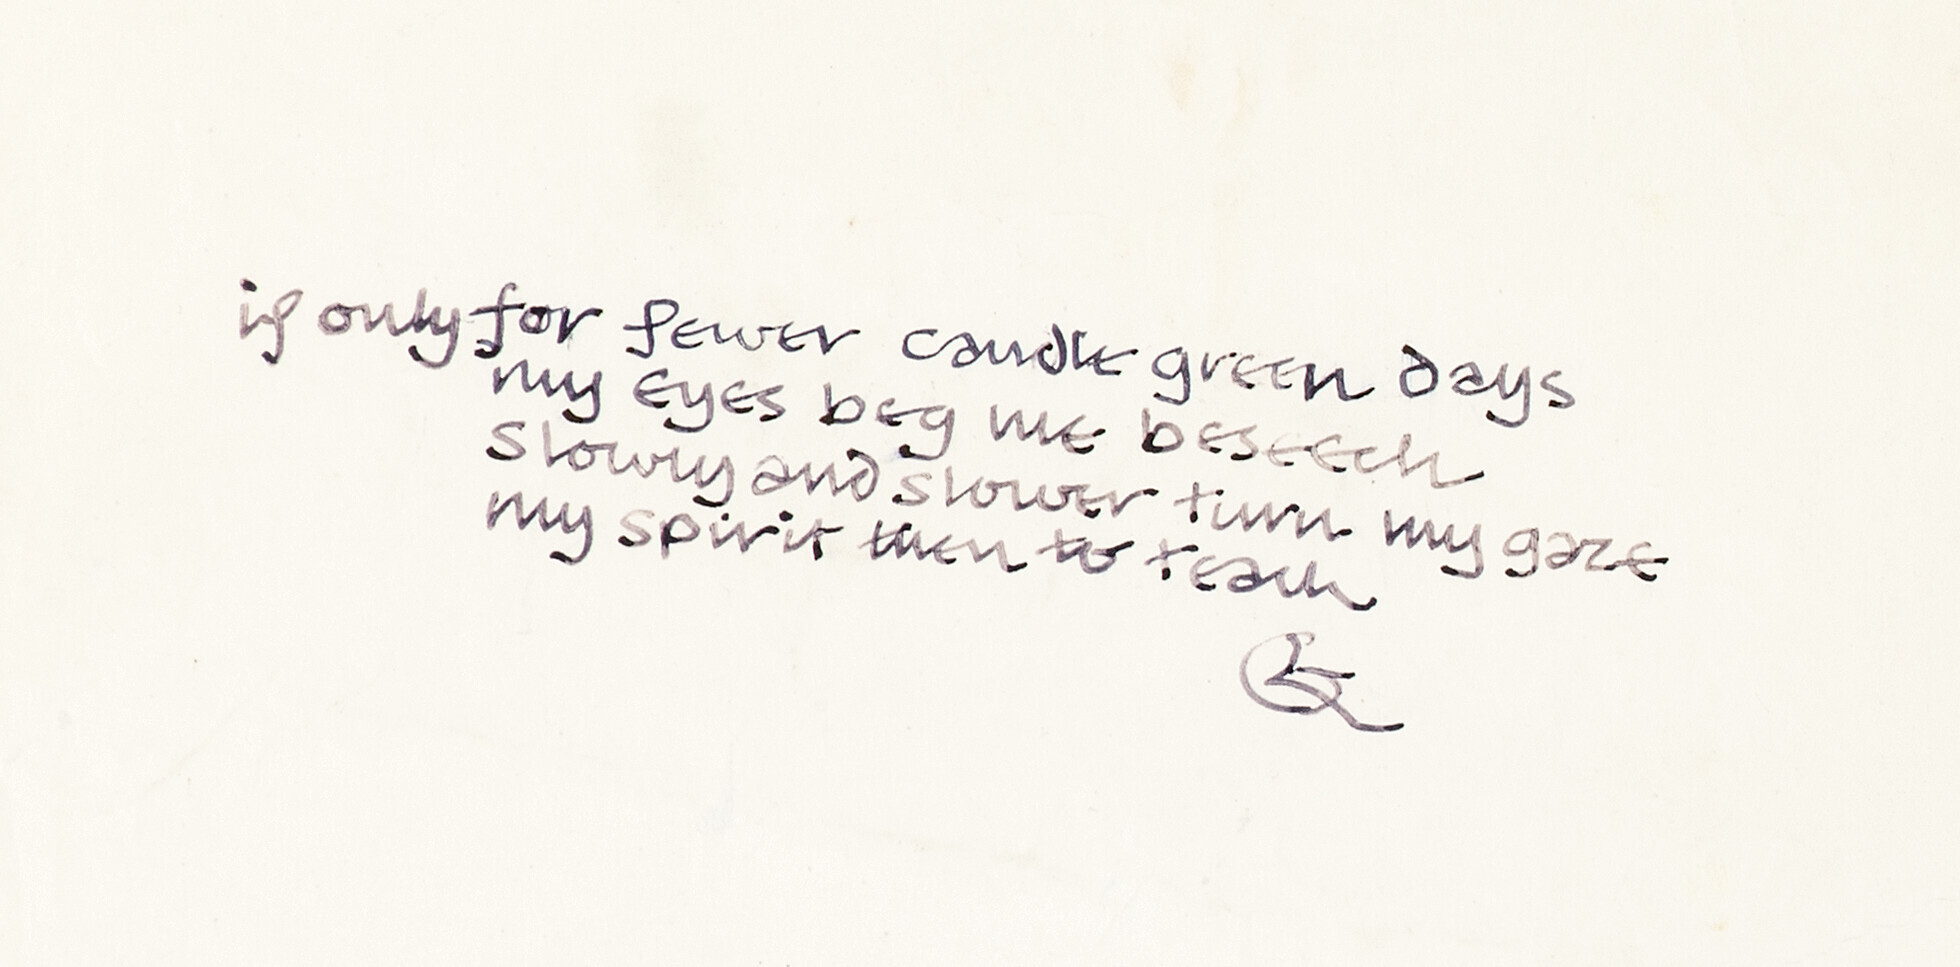 if only for fewer candle green days
my eyes beg me beseech
slowly and slower turn my gaze
my spirit then to teach